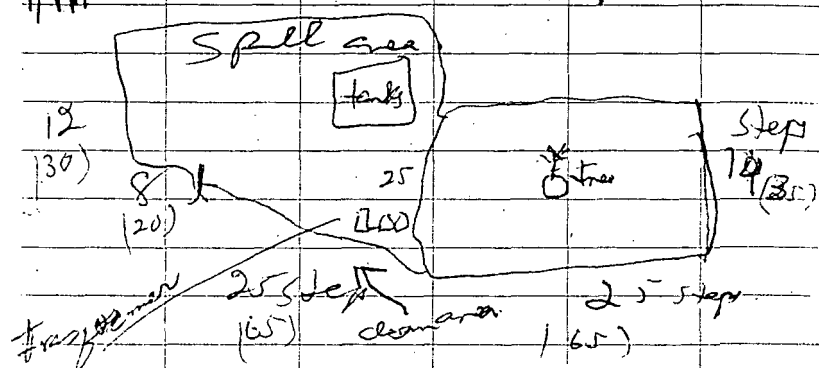 Spill area
tanks
12
(30)
8
(20)
25
tree
steps
14
(35)
transformer
25 steps
(65)
clean area
25 steps
(65)